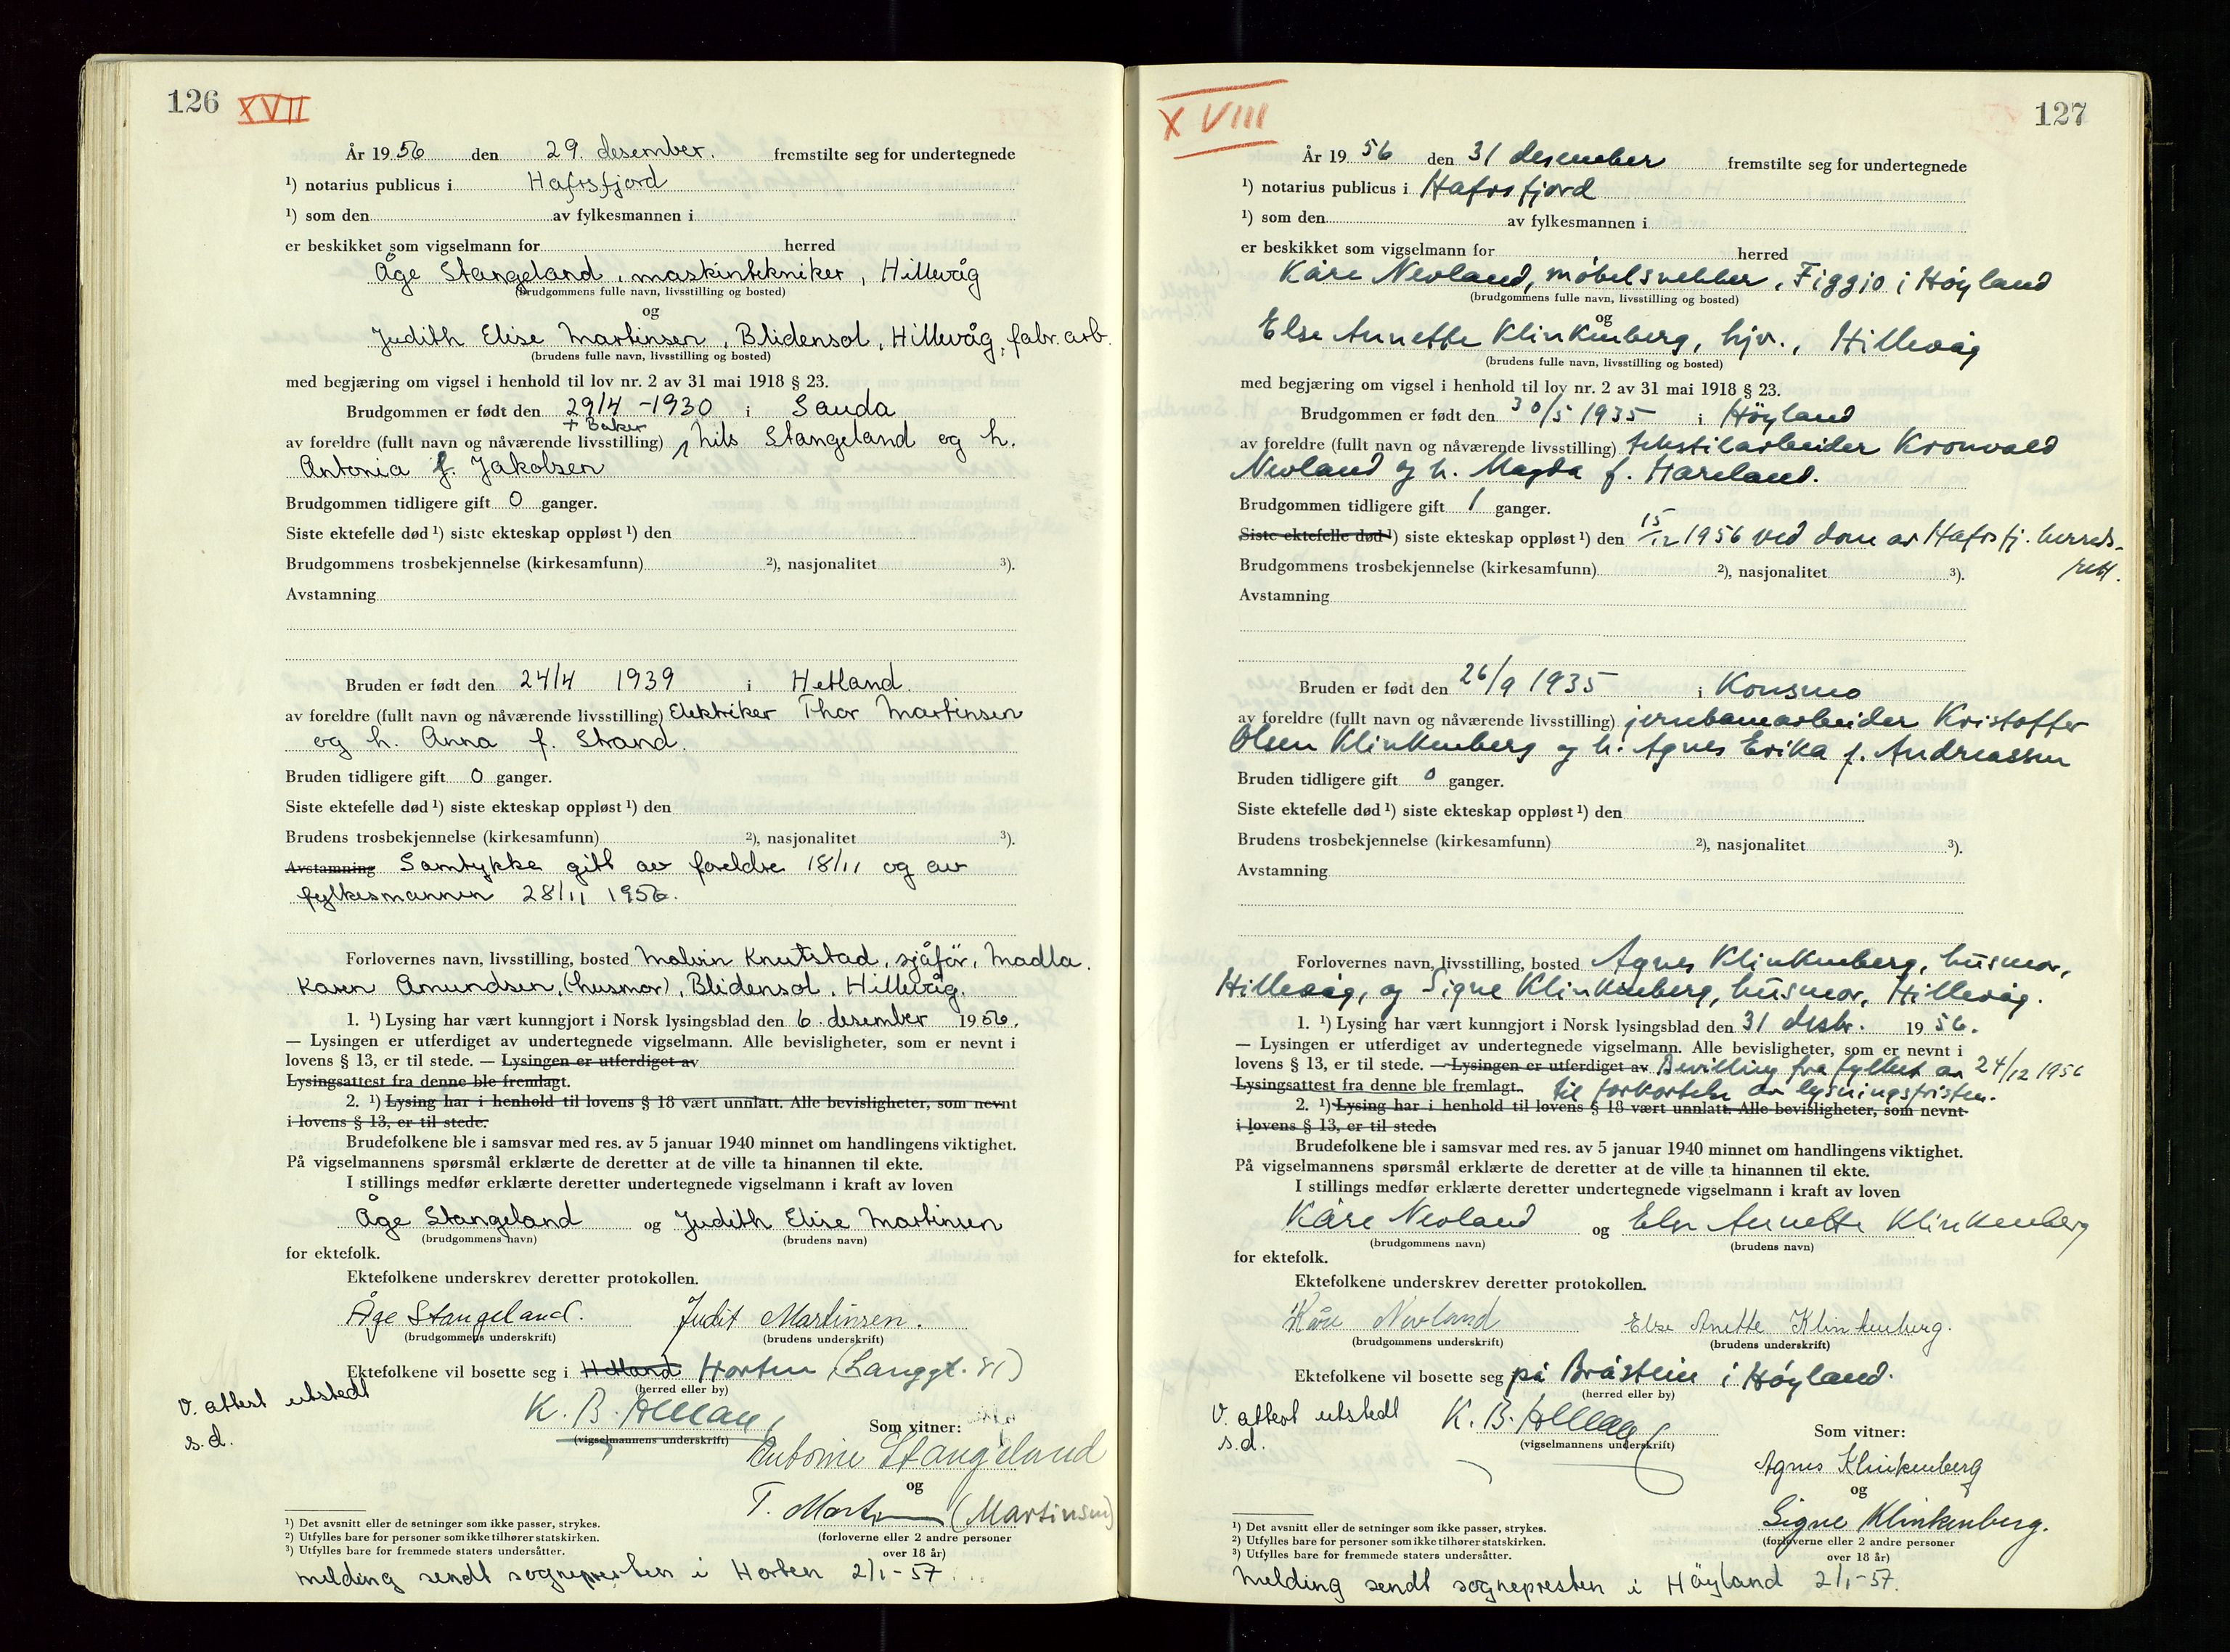 126 XVII
År 1956 den 29. desember. fremstilte seg for undertegnede
¹) notarius publicus i Hafrsfjord
¹) som den av fylkesmannen i
er beskikket som vigselmann for herred
Åge Stangeland, maskintekniker, Hillevåg
(brudgommens fulle navn, livsstilling og bosted)
og
Judith Elise Martinsen, Blidensol, Hillevåg, fabr.arb.
(brudens fulle navn, livsstilling og bosted)
med begjæring om vigsel i henhold til lov nr. 2 av 31 mai 1918 § 23.
Brudgommen er født den 29/4 -1930 i Sauda
+ Baker
av foreldre (fullt navn og nåværende livsstilling) Nils Stangeland og h.
Antonia f. Jakobsen
Brudgommen tidligere gift 0 ganger.
Siste ektefelle død ¹) siste ekteskap oppløst ¹) den
Brudgommens trosbekjennelse (kirkesamfunn) ²), nasjonalitet ³).
Avstamning
Bruden er født den 24/4 1939 i Hetland.
av foreldre (fullt navn og nåværende livsstilling) Elektriker Thor Martinsen
og h. Anna f. Strand.
Bruden tidligere gift 0 ganger.
Siste ektefelle død ¹) siste ekteskap oppløst ¹) den
Brudens trosbekjennelse (kirkesamfunn) ²), nasjonalitet ³).
Avstamning Samtykke gitt av foreldre 18/11 og av
fylkesmannen 28/11 1956.
Forlovernes navn, livsstilling, bosted Malvin Knutstad, sjåför, Madla.
Karen Amundsen, (husmor), Blidensol, Hillevåg.
1. ¹) Lysing har vært kunngjort i Norsk lysingsblad den 6. desember 1956.
— Lysingen er utferdiget av undertegnede vigselmann. Alle bevisligheter, som er nevnt i
lovens § 13, er til stede. — Lysingen er utferdiget av
Lysingsattest fra denne ble fremlagt.
2. ¹) Lysing har i henhold til lovens § 18 vært unnlatt. Alle bevisligheter, som nevnt
i lovens § 13, er til stede.
Brudefolkene ble i samsvar med res. av 5 januar 1940 minnet om handlingens viktighet.
På vigselmannens spørsmål erklærte de deretter at de ville ta hinannen til ekte.
I stillings medfør erklærte deretter undertegnede vigselmann i kraft av loven
Åge Stangeland og Judith Elise Martinsen
(brudgommens navn) (brudens navn)
for ektefolk.
Ektefolkene underskrev deretter protokollen.
Åge Stangeland. Judit Martinsen.
(brudgommens underskrift) (brudens underskrift)
Ektefolkene vil bosette seg i Hetland Horten (Langgt. 81)
(herred eller by)
V. attest utstedt
s.d.
K. B.
(vigselmannens underskrift)
Som vitner:
Antonie Stangeland
og
T. Martinsen (Martinsen)
(forloverne eller 2 andre personer
over 18 år)
¹) Det avsnitt eller de setninger som ikke passer, strykes.
²) Utfylles bare for personer som ikke tilhører statskirken.
³) Utfylles bare for fremmede staters undersåtter.
Melding sendt sognepresten i Horten 2/1-57
XVIII 127
År 1956 den 31 desember fremstilte seg for undertegnede
¹) notarius publicus i Hafrsfjord
¹) som den av fylkesmannen i
er beskikket som vigselmann for herred
Kåre Nevland, møbelsnekker, Figgjo i Høyland
(brudgommens fulle navn, livsstilling og bosted)
og
Else Annette Klinkenberg, hjv., Hillevåg
(brudens fulle navn, livsstilling og bosted)
med begjæring om vigsel i henhold til lov nr. 2 av 31 mai 1918 § 23.
Brudgommen er født den 30/5 1935 i Høyland
av foreldre (fullt navn og nåværende livsstilling) tekstilarbeider Kronvald
Nevland og h. Magda f. Hareland.
Brudgommen tidligere gift 1 ganger.
Siste ektefelle død ¹) siste ekteskap oppløst ¹) den 15/12 1956 ved dom av Hafrsfj. herreds-
rett.
Brudgommens trosbekjennelse (kirkesamfunn) ²), nasjonalitet ³).
Avstamning
Bruden er født den 26/9 1935 i Konsmo
av foreldre (fullt navn og nåværende livsstilling) jernbanearbeider Kristoffer
Olsen Klinkenberg og h. Agnes Erika f. Andreassen
Bruden tidligere gift 0 ganger.
Siste ektefelle død ¹) siste ekteskap oppløst ¹) den
Brudens trosbekjennelse (kirkesamfunn) ²), nasjonalitet ³).
Avstamning
Forlovernes navn, livsstilling, bosted Agnes Klinkenberg, husmor,
Hillevåg, og Signe Klinkenberg, husmor, Hillevåg.
1. ¹) Lysing har vært kunngjort i Norsk lysingsblad den 31 desbr. 1956.
— Lysingen er utferdiget av undertegnede vigselmann. Alle bevisligheter, som er nevnt i
lovens § 13, er til stede. — Lysingen er utferdiget av Bevilling fra fylket av 24/12 1956
Lysingsattest fra denne ble fremlagt. til forkortelse av lysningsfristen.
2. ¹) Lysing har i henhold til lovens § 18 vært unnlatt. Alle bevisligheter, som nevnt
i lovens § 13, er til stede.
Brudefolkene ble i samsvar med res. av 5 januar 1940 minnet om handlingens viktighet.
På vigselmannens spørsmål erklærte de deretter at de ville ta hinannen til ekte.
I stillings medfør erklærte deretter undertegnede vigselmann i kraft av loven
Kåre Nevland og Else Annette Klinkenberg
(brudgommens navn) (brudens navn)
for ektefolk.
Ektefolkene underskrev deretter protokollen.
Kåre Nevland Else Anette Klinkenberg.
(brudgommens underskrift) (brudens underskrift)
Ektefolkene vil bosette seg på Bråstein i Høyland.
(herred eller by)
V. attest utstedt
s.d.
K. B.
(vigselmannens underskrift)
Som vitner:
Agnes Klinkenberg
og
Signe Klinkenberg.
(forloverne eller 2 andre personer
over 18 år)
¹) Det avsnitt eller de setninger som ikke passer, strykes.
²) Utfylles bare for personer som ikke tilhører statskirken.
³) Utfylles bare for fremmede staters undersåtter.
Melding sendt sognepresten i Höyland 2/1-57.